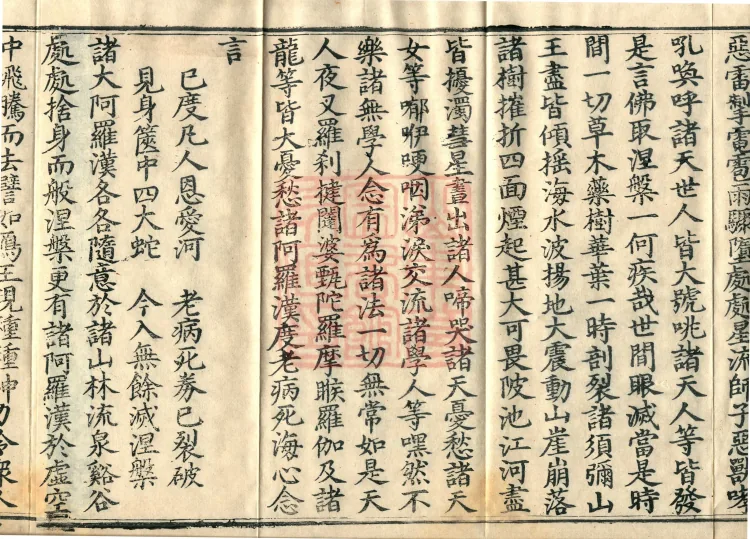 惡雷掣電雹雨驟墮處處星流師子惡獸哮
吼喚呼諸天世人皆大號咷諸天人等皆發
是言佛取涅槃一何疾哉世間眼滅當是時
間一切草木藥樹華葉一時剖裂諸須彌山
王盡皆傾搖海水波揚地大震動山崖崩落
諸樹摧折四面煙起甚大可畏陂池江河盡
皆擾濁彗星晝出諸人啼哭諸天憂愁諸天
女等郁伊哽咽涕淚交流諸學人等嘿然不
樂諸無學人念有為諸法一切無常如是天
人夜叉羅剎揵闥婆甄陀羅摩睺羅伽及諸
龍等皆大憂愁諸阿羅漢度老病死海心念
言
已度凡人恩愛河 老病死券已裂破
見身篋中四大蛇 今入無餘滅涅槃
諸大阿羅漢各各隨意於諸山林流泉谿谷
處處捨身而般涅槃更有諸阿羅漢於虛空
中飛騰而去譬如鴈王現種種神力令眾人